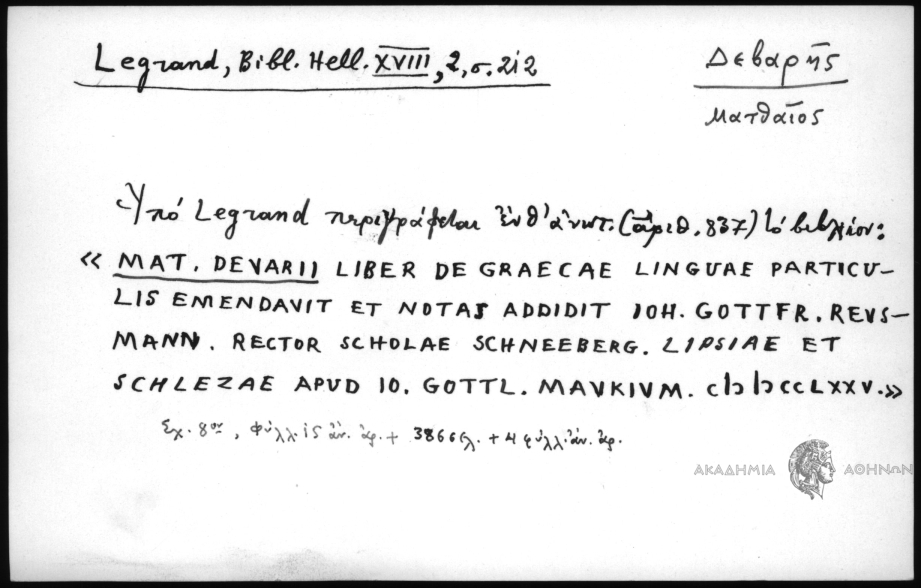 Legrand, Bibl. Hell. XVIII, 2, σ. 212
Δεβαρῆς
Ματθαῖος
Ὑπό Legrand περιγράφεται ἔνθ' ἀνωτ. (ἀριθ. 837) τό βιβλίον:
« MAT. DEVARII LIBER DE GRAECAE LINGUAE PARTICU-
LIS EMENDAVIT ET NOTAS ADDIDIT IOH. GOTTFR. REUS-
MANN. RECTOR SCHOLAE SCHNEEBERG. LIPSIAE ET
SCHLEZAE APUD IO. GOTTL. MAUKIUM. cIɔ IɔccLXXV.»
Σχ. 8ον, φύλλ. 15 ἄν. ἀρ. + 386 σελ. + 4 φύλλ. ἄν. ἀρ.
ΑΚΑΔΗΜΙΑ ΑΘΗΝΩΝ